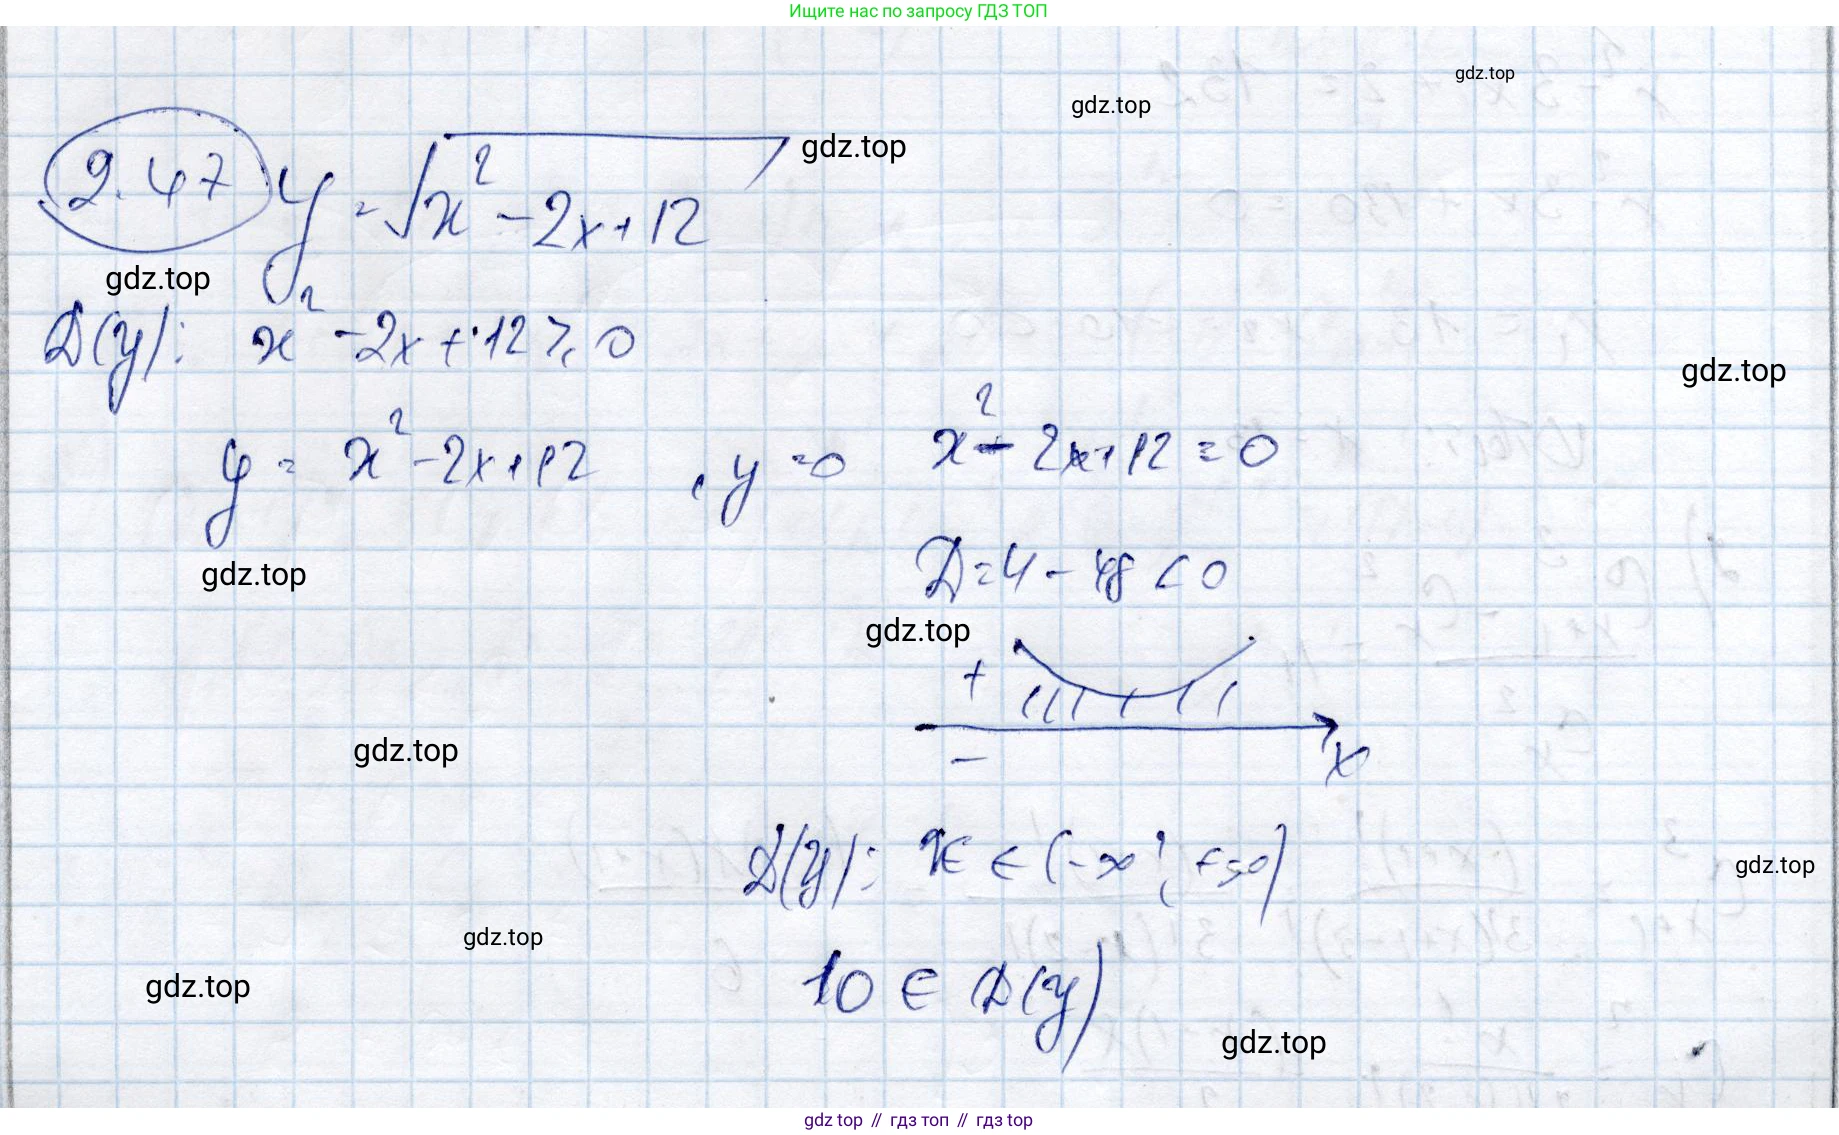 Ищите нас по запросу ГДЗ ТОП
gdz.top
gdz.top
gdz.top
2.47 y = √x² - 2x + 12
gdz.top
D(y): x² - 2x + 12 ≥ 0
gdz.top
y = x² - 2x + 12 , y = 0 x² - 2x + 12 = 0
gdz.top
D = 4 - 48 < 0
gdz.top
+
gdz.top
- x
D(y): x ∈ (-∞; +∞)
gdz.top
gdz.top
gdz.top
10 ∈ D(y)
gdz.top
gdz top // гдз топ // gdz top